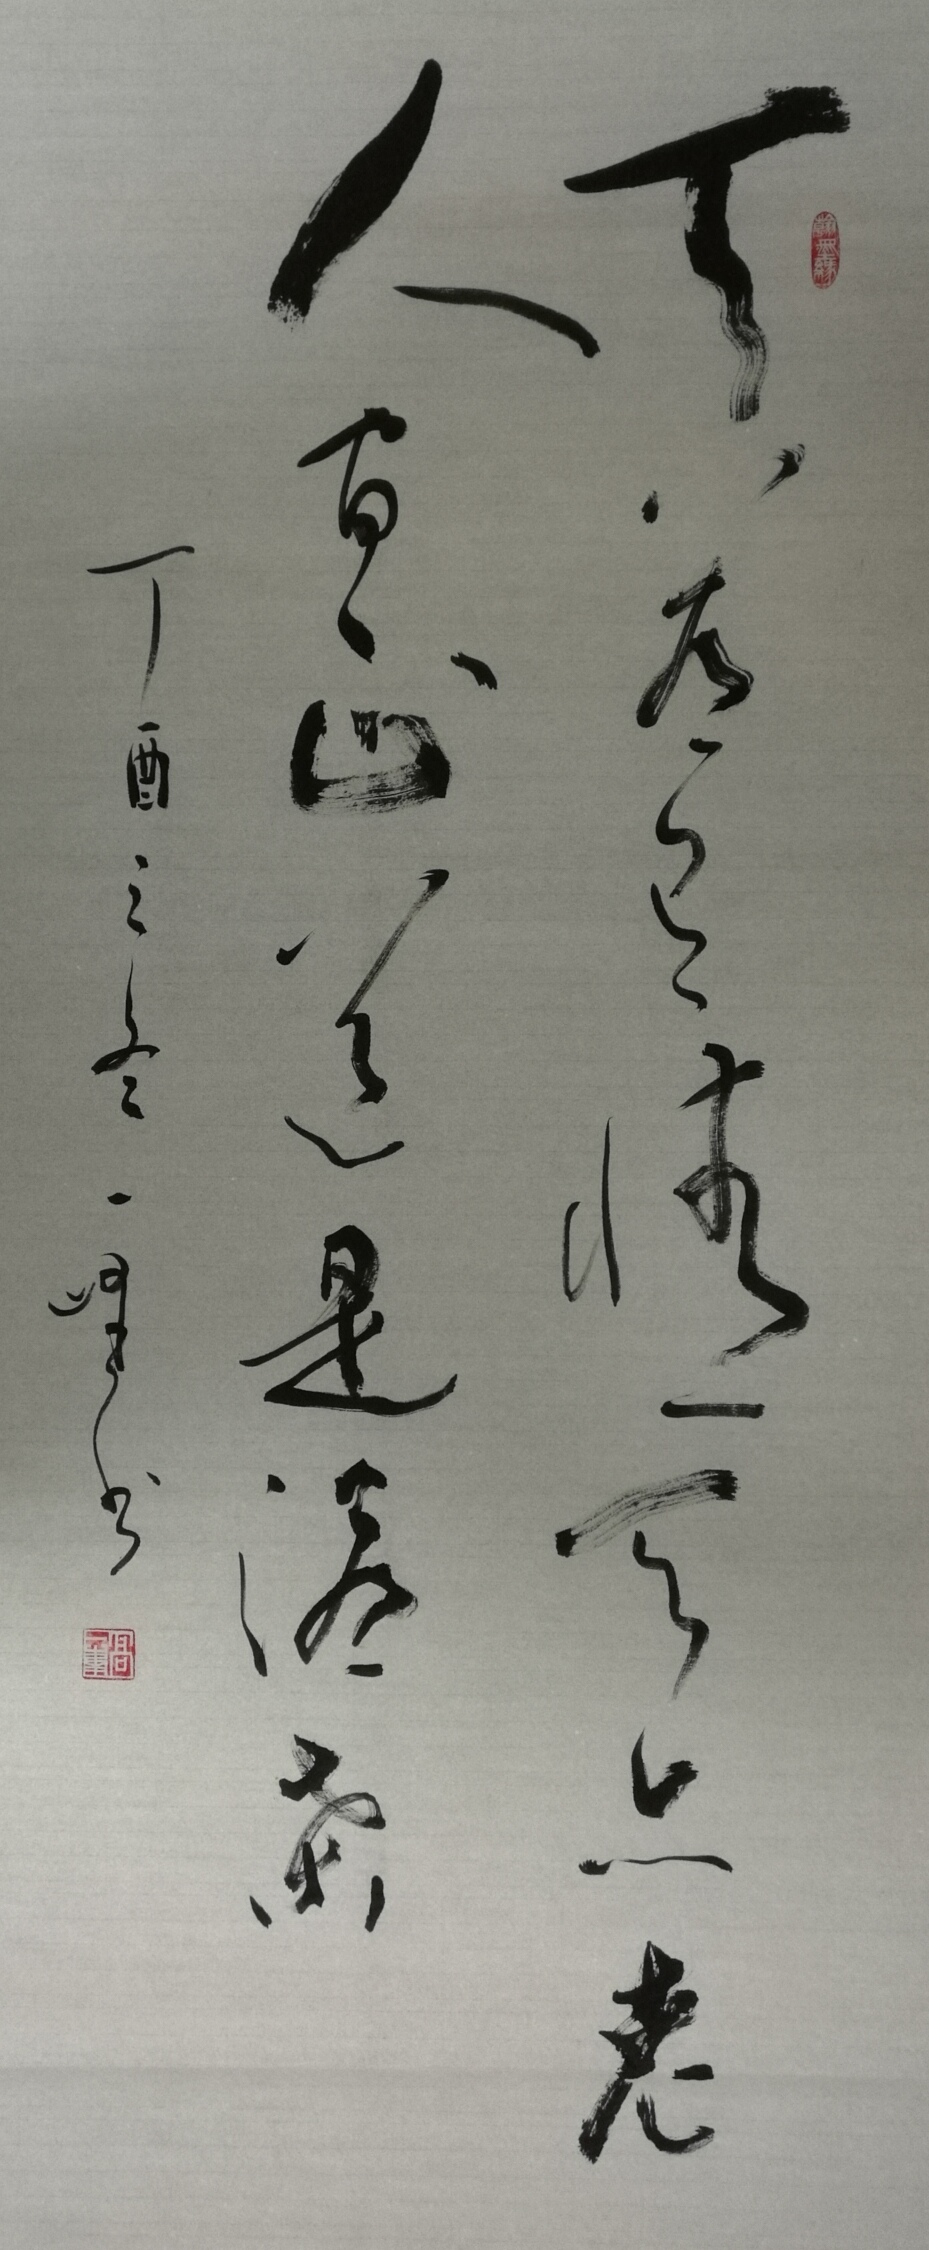 天若有情天亦老
人间正道是沧桑
丁酉之冬一峰书